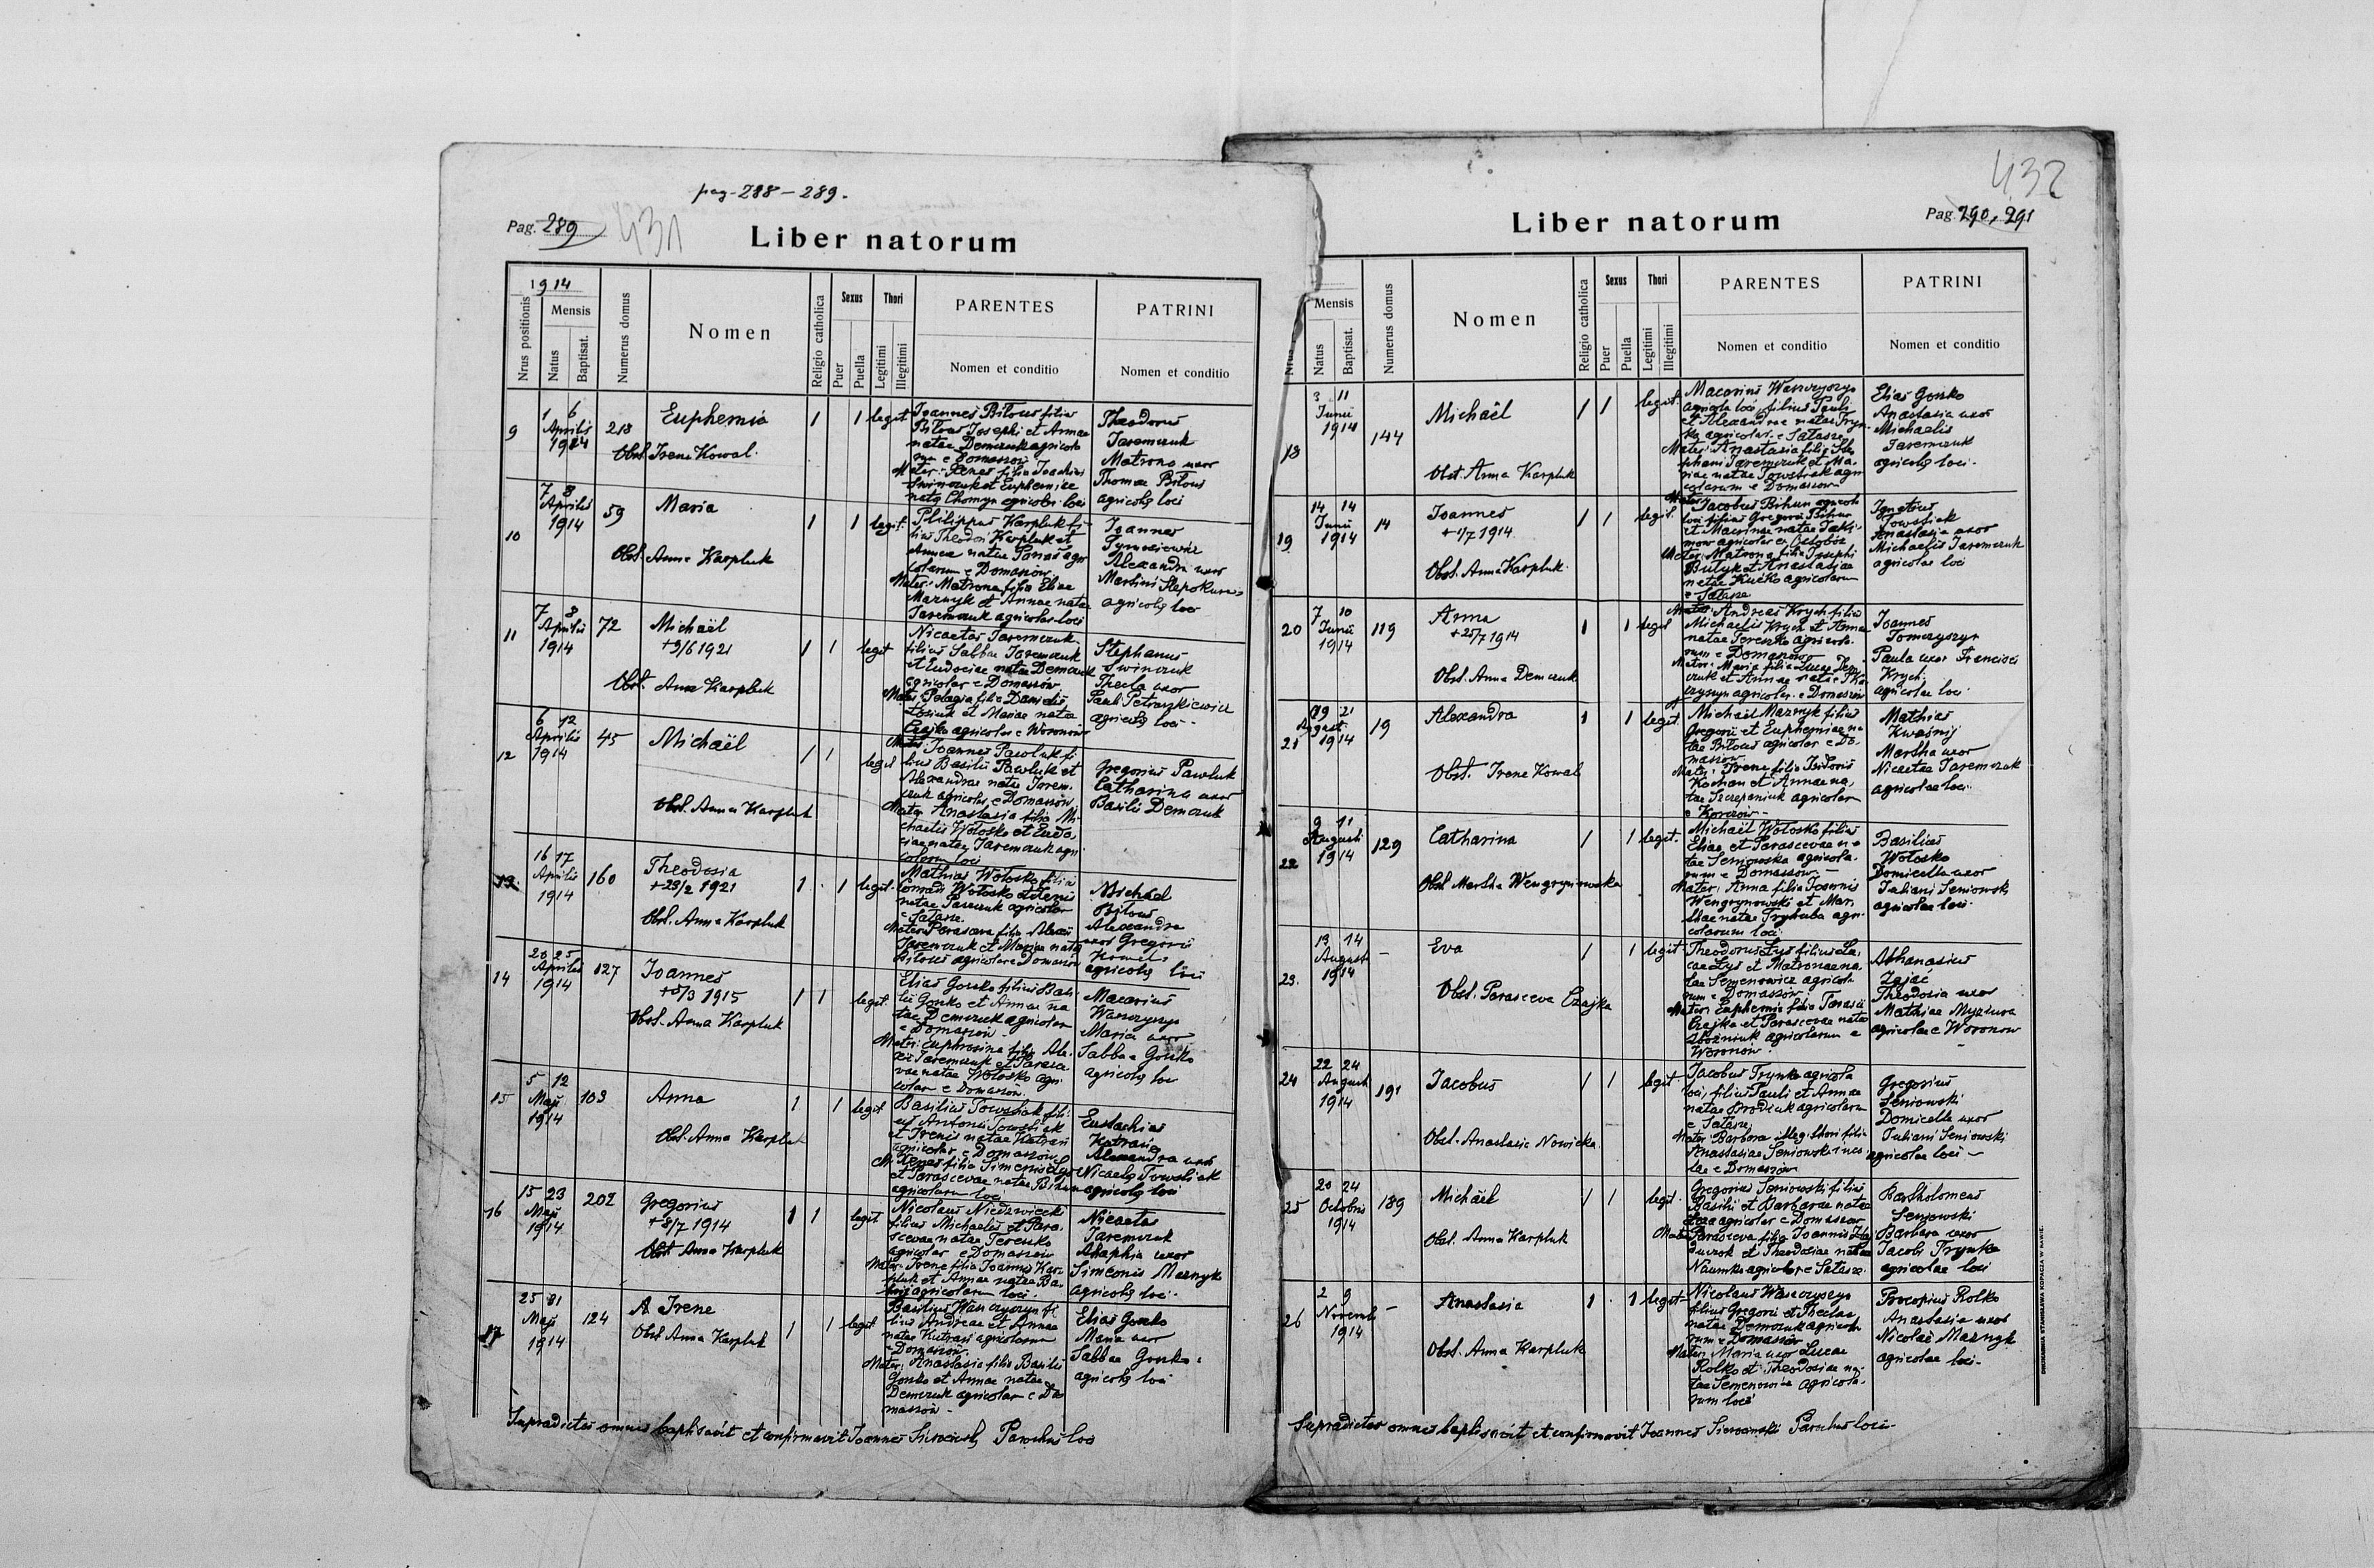 pag. 288 – 289.
Pag. 289
431
Liber natorum
1914
Nrus positionis
Mensis
Natus
Baptisat.
Numerus domus
Nomen
Religio catholica
Sexus
Puer
Puella
Thori
Legitimi
Illegitimi
PARENTES
Nomen et conditio
PATRINI
Nomen et conditio
9
1 6
Aprilis
1914
213
Euphemia
Obst. Irene Kowal.
1
1
legit
Joannes Biłous filius
Josephi et Annae
natae Demczuk agricola
Mater: filia Joachimi
Swinczuk et Euphemiae
agricolar. loci
Theodorus
Jaremczuk
Matrona uxor
Thomae Biłous
agricolae loci
10
7 8
Aprilis
1914
59
Maria
Obst. Anna Karpluk
1
1
legit.
Philippus Karpluk fi-
lius Theodori Karpluk et
Annae natae Panas agri
colarum e Domaszów.
Mater: Matrona filia Eliae
Maznyk et Annae natae
Jaremczuk agricolar. loci
Joannes
Alexandra uxor
Martini
agricolae loci
11
7 8
Aprilis
1914
72
Michaël
+ 9/6 1921
Obst. Anna Karpluk
1
1
legit
Nicaetas Jaremczuk
filius Sabbae Jaremczuk
et Eudociae natae Demczuk
agricolar e Domaszów
Mater: Pelagia filia Danielis
et Mariae natae
Czajka agricolar e Woronów
Stephanus
Swinczuk
Thecla uxor
Pauli Petraszkiewicz
agricolae loci
12
6 12
Aprilis
1914
45
Michaël
Obst. Anna Karpluk
1
1
legit
Joannes Pawluk fi
lius Basilii Pawluk et
Alexandrae natae Jarem-
czuk agricolar. e Domaszów
Mater Anastasia filia Mi-
chaelis Wołosko et Eudo-
ciae natae Jaremczuk agri
colarum loci
Gregorius Pawluk
Catharina uxor
Basilii Demczuk
13.
16 17
Aprilis
1914
160
Theodosia
+ 23/2 1921
Obst. Anna Karpluk
1
1
legit.
Mathias Wołosko filius
Wołosko et Irenis
natae agricolar
e Sałasze.
Mater: Parasceva filia Alexii
Jaremczuk et Mariae natae
Biłous agricolar e Domaszów
Michael
Biłous
Alexandra
uxor Gregorii
agricolae loci
14
20 25
Aprilis
1914
127
Joannes
+ 5/3 1915
Obst. Anna Karpluk
1
1
legit.
Elias Gonko filius Basi-
lii Gonko et Annae na
tae Demczuk agricolar
e Domaszów
Mater: Euphrosina filia Ale-
xii Jaremczuk et Parasce-
vae natae Wołosko agri-
colar e Domaszów.
Macarius
Waszczyszyn
Maria uxor
Sabbae Gonko
agricolae loci
15
5 12
Maji
1914
103
Anna
Obst. Anna Karpluk
1
1
legit
Basilius Towstiak fili-
us Antonii Towstiak
et Irenis natae Kutrań
agricolar e Domaszów
filia Simeonis Lys
et Parascevae natae Bihun
agricolarum loci
Eustachius
Kutrań
Alexandra uxor
Nicaetae Towstiak
agricolae loci
16
15 23
Maji
1914
202
Gregorius
+ 8/7 1914
Obst. Anna Karpluk
1
1
legit
Nicolaus Niedzwiecki
filius Michaelis et Para-
scevae natae Tereszko
agricolar e Domaszów
Mater: Irene filia Joannis Kar-
pluk et Annae natae
agricolarum loci.
Nicaetas
Jaremczuk
Ahaphia uxor
Simeonis Maznyk
agricolae loci.
17
25 31
Maji
1914
124
Irene
Obst. Anna Karpluk
1
1
legit
Basilius Waszczyszyn fi
lius Andreae et Annae
natae Kutrań agricolarum
e Domaszów.
Mater: Anastasia filia Basilii
Gonko et Annae natae
Demczuk agricolar e Do
maszów
Elias Gonko
Maria uxor
Sabbae Gonko
agricolae loci
Supradictos omnes baptisavit et confirmavit Joannes Parochus loci
432
Pag. 290, 291
Liber natorum
Mensis
Natus
Baptisat.
Numerus domus
Nomen
Religio catholica
Sexus
Puer
Puella
Thori
Legitimi
Illegitimi
PARENTES
Nomen et conditio
PATRINI
Nomen et conditio
18
3 11
Junii
1914
144
Michaël
Obst. Anna Karpluk
1
1
legit.
Macarius Waszczyszyn
agricola loci, filius Pauli
et Alexandrae natae
agricolar. e Sałasze
Mater: Anastasia filia Ste
phani Jaremczuk et Ma-
riae natae Towstiak agri
colarum e Domaszow
Elias Gonko
Anastasia uxor
Michaelis
Jaremczuk
agricolae loci.
19
14 14
Junii
1914
14
Joannes
+ 1/7 1914
Obst. Anna Karpluk.
1
1
legit.
Jacobus Bihun agricola
loci filius Gregorii Bihun
et Macrinae natae
agricolar
Mater: Matrona filia Josephi
Butyk et Anastasiae
natae Kućko agricolarum
e Sałasze
Ignatius
Towstiak
Anastasia uxor
Michaelis Jaremczuk
agricolae loci
20
7 10
Junii
1914
119
Anna
+ 25/7 1914
Obst. Anna Demczuk
1
1
legit
Andreas Krych filius
Michaelis Krych et Annae
natae Tereszko agricola-
rum e Domaszów
Mater: Maria filia Lucae Dem-
czuk et Annae natae
agricolar. e Domaszów
Joannes
Tomczyszyn
Paula uxor Francisci
Krych.
agricolae loci.
21
19 21
August.
1914
19
Alexandra
Obst. Irene Kowal
1
1
legit.
Michael Maznyk filius
Gregorii et Euphemiae na
tae Biłous agricolar e Do-
maszow
Mater: Irene filia Isidoris
et Annae na-
tae Szczepaniuk agricolarum
e Korczów
Mathias
Kwaśnij
Martha uxor
Nicaetae Jaremczuk
agricolae loci.
22
9 11
Augusti
1914
129
Catharina
Obst. Martha Wengrynowska
1
1
legit.
Michaël Wołosko filius
Eliae et Parascevae na
tae Seniowska agricola-
rum e Domaszow.
Mater: Anna filia Joannis
Wengrynowski et Mar-
thae natae Tryhuba agri-
colarum loci
Basilius
Wołosko
Domicella uxor
Juliani Seniowski
agricolae loci.
23.
13 14
August
1914
–
Eva
Obst. Parasceva Czajka
1
1
legit
Theodorus Lys filius Lu-
cae Lys et Matronae na
tae Semenowicz agricola
rum e Domaszów.
Mater: Euphemia filia Tarasii
Czajka et Parascevae natae
agricolarum e
Woronów.
Athanasius
Zając
Theodosia uxor
Mathiae Myziura
agricolae e Woronow
24
22 24
August
1914
191
Jacobus
Obst. Anastasia Nowicka.
1
1
legit.
Jacobus Trynka agricola
loci, filius Pauli et Annae
natae agricolarum
e Sałasze.
Mater: Barbara illeg. thori filia
Anastasiae Seniowski
e Domaszów
Gregorius
Seniowski
Domicella uxor
Juliani Seniowski
agricolae loci
25
20 24
Octobris
1914
189
Michaël
Obst. Anna Karpluk
1
1
legit.
Gregorius Seniowski filius
Basilii et Barbarae natae
agricolar e Domaszow
Mater Parasceva filia Joannis
et Theodosiae natae
Naumko agricolar e Sałasze.
Bartholomeus
Seniowski
Barbara uxor
Jacobi Trynka
agricolae loci
26
2 9
Novemb
1914
–
Anastasia
Obst. Anna Karpluk
1
1
legit
Nicolaus Waszczyszyn
filius Gregorii et Theclae
natae Demczuk agricola
rum e Domaszów
Mater: Maria uxor Lucae
Rolko et Theodosiae na-
tae Semenowicz agricola-
rum loci
Procopius Rolko
Anastasia uxor
Nicolai Maznyk
agricolae loci.
Supradictos omnes baptisavit et confirmavit Joannes Parochus loci.
DRUKARNIA STANISŁAWA KOPACZA W RAWIE.